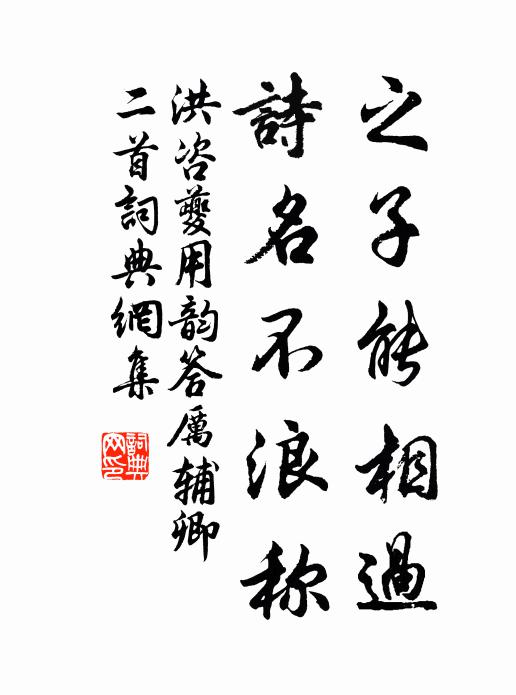 之子能相過
詩名不浪称
洪咨夔用韵答厲輔卿
二首詞典網集
詞典
网印